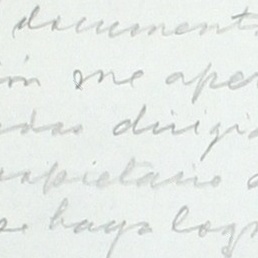 documento
ión me aper
adas dirigid
ropietario d
se haya logr